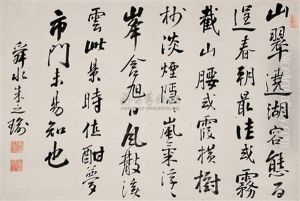 山翠遶湖容態百
逞春朝最佳或霧
截山腰或霞橫樹
杪淡煙隱嵐氣浮〻
峯含旭日風散溪
雲此景時值酣夢
市門未易知也
舜水朱之瑜